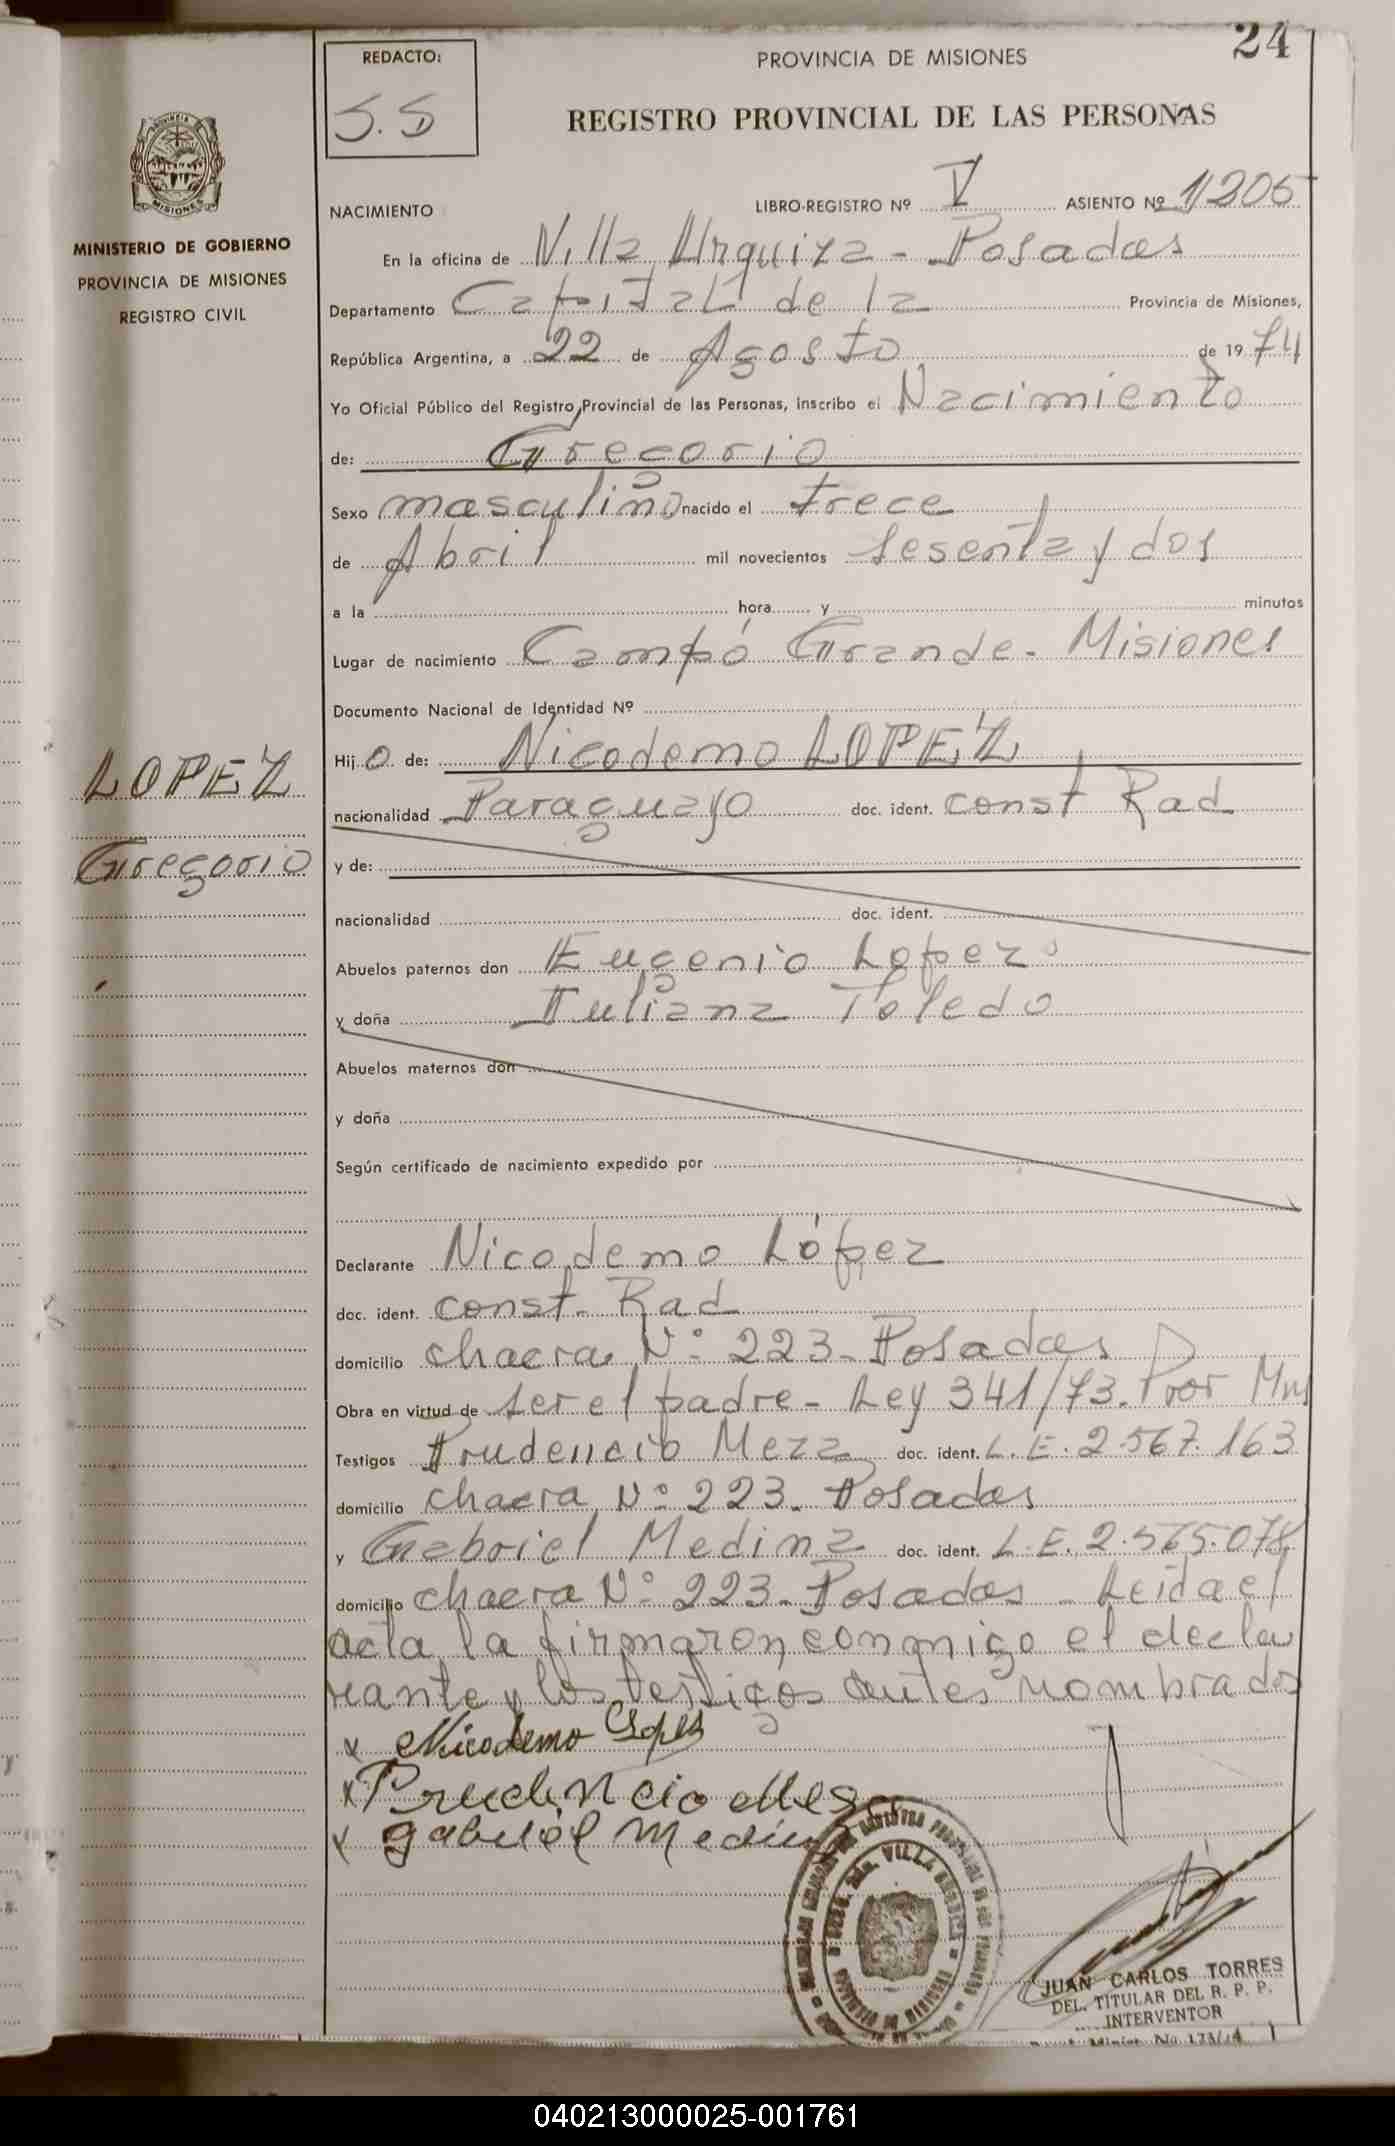 24
REDACTO:
S. S
PROVINCIA DE MISIONES
REGISTRO PROVINCIAL DE LAS PERSONAS
PROVINCIA
MISIONES
MINISTERIO DE GOBIERNO
PROVINCIA DE MISIONES
REGISTRO CIVIL
NACIMIENTO LIBRO-REGISTRO Nº V ASIENTO Nº 1/205
En la oficina de Villa Urquiza - Posadas
Departamento Capital de la Provincia de Misiones,
República Argentina, a 22 de Agosto de 1974
Yo Oficial Público del Registro Provincial de las Personas, inscribo el Nacimiento
de: Gregorio
Sexo masculino nacido el trece
de Abril mil novecientos sesenta y dos
a la hora y minutos
Lugar de nacimiento Campó Grande - Misiones
Documento Nacional de Identidad Nº
Hijo de: Nicodemo LOPEZ
LOPEZ
nacionalidad Paraguayo doc. ident. const Rad
Gregorio
y de:
nacionalidad doc. ident.
Abuelos paternos don Eugenio Lopez
y doña Juliana Toledo
Abuelos maternos don
y doña
Según certificado de nacimiento expedido por
Declarante Nicodemo López
doc. ident. const. Rad
domicilio chacra Nº 223 - Posadas
Obra en virtud de ser el padre - Ley 341/73. Pror
Testigos Prudencio Meza doc. ident. L. E. 2.567.163
domicilio chacra Nº 223. Posadas
y Gabriel Medina doc. ident. L. E. 2.565.078
domicilio chacra Nº 223 - Posadas - Leida el
acta la firmaron conmigo el decla
rante y los testigos antes nombrados
x Nicodemo Lopez
x Prudincio Mesa
x gabriel Medina
VILLA URQUIZA
JUAN CARLOS TORRES
DEL. TITULAR DEL R. P. P.
INTERVENTOR
040213000025-001761